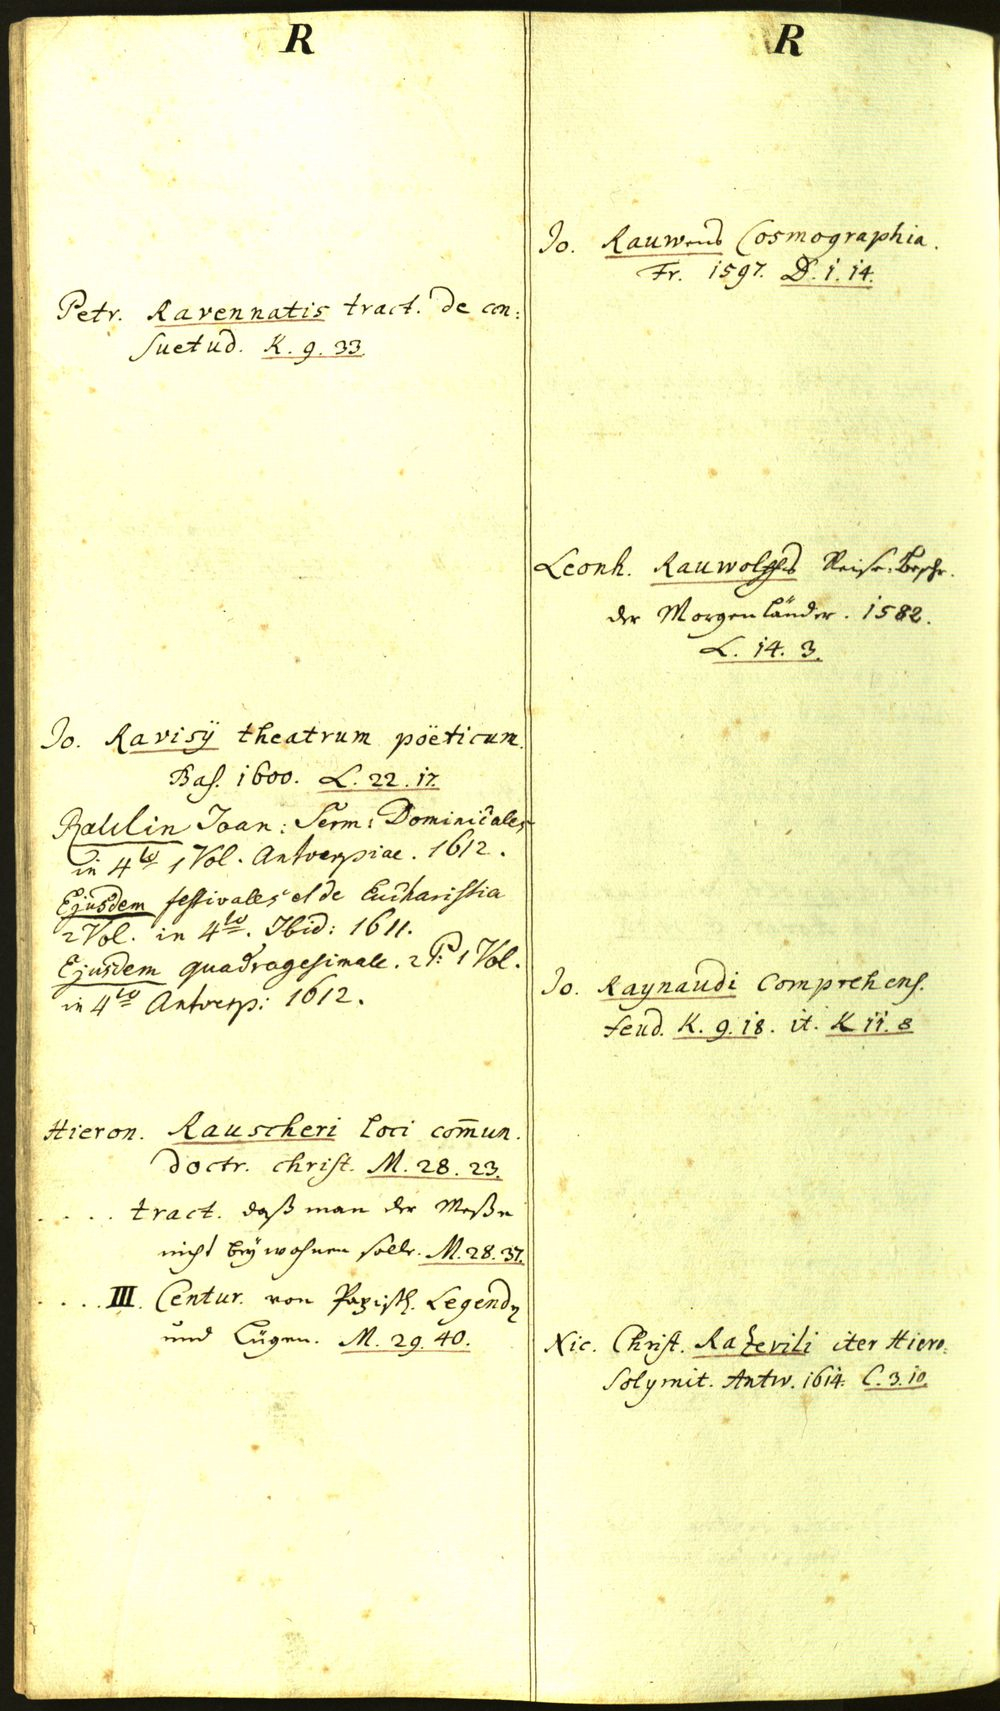 R
Petr. Ravennatis tract. de con:
suetud. K. 9. 33.
Jo. Ravisÿ theatrum poëticum.
Bas. 1600. L. 22. 17.
Raulin Joan: Serm: Dominicales
in 4to 1 Vol. Antverpiae. 1612.
Ejusdem festivales et de Eucharistia
2 Vol. in 4to. Ibid: 1611.
Ejusdem quadragesimale. 2 P: 1 Vol.
in 4to Antverp: 1612.
Hieron. Rauscheri loci com̄un.
doctr. christ. M. 28. 23.
.... tract. daß man der Meße
nicht beÿwohnen solle. M. 28. 37.
.... III. Centur. von Papistl. Legendn
und Lügen. M. 29. 40.
R
Jo. Rauwens Cosmographia.
Fr. 1597. D. 1. 14.
Leonh. Rauwolffs Reise-Beschr.
der Morgenländer. 1582.
L. 14. 3.
Jo. Raynaudi Comprehens.
feud. K. 9. 18. it. K 11. 8
Nic. Christ. Razevili iter Hiero-
solymit. Antw. 1614. C. 3. 10.